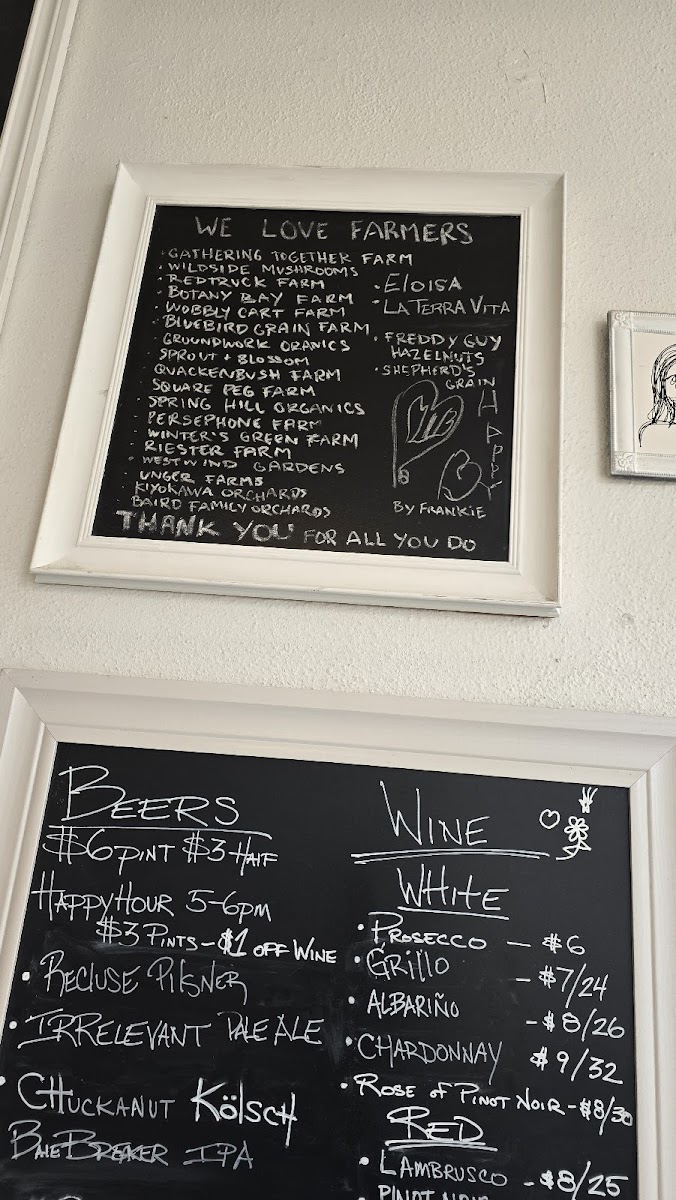 WE LOVE FARMERS
· GATHERING TOGETHER FARM
· WILDSIDE MUSHROOMS
· REDTRUCK FARM
· BOTANY BAY FARM
· WOBBLY CART FARM
· BLUEBIRD GRAIN FARM
· GROUNDWORK ORANICS
· SPROUT + BLOSSOM
· QUACKENBUSH FARM
· SQUARE PEG FARM
· SPRING HILL ORGANICS
· PERSEPHONE FARM
· WINTER'S GREEN FARM
· RIESTER FARM
· WESTWIND GARDENS
· UNGER FARMS
· KIYOKAWA ORCHARDS
· BAIRD FAMILY ORCHARDS
· ELOISA
· LA TERRA VITA
· FREDDY GUY
HAZELNUTS
· SHEPHERD'S
GRAIN
HAPPY
BY FRANKIE
THANK YOU FOR ALL YOU DO
BEERS
$6 PINT $3 HALF
HAPPY HOUR 5-6PM
$3 PINTS - $1 OFF WINE
• RECLUSE PILSNER
• IRRELEVANT PALE ALE
• CHUCKANUT KÖLSCH
BALE BREAKER IPA
WINE
WHITE
• PROSECCO - $6
• GRILLO - $7/24
• ALBARIÑO - $8/26
• CHARDONNAY $9/32
• ROSE OF PINOT NOIR - $8/30
RED
• LAMBRUSCO - $8/25
PINOT NOIR